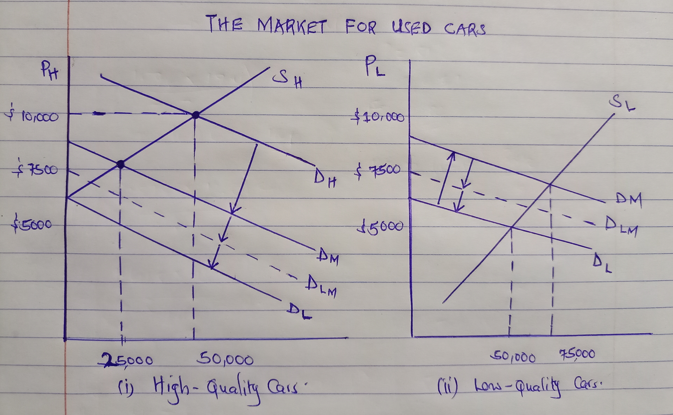 THE MARKET FOR USED CARS
PH
SH
$10,000
$7500
$5000
DH
DM
DLM
DL
25,000
50,000
(i) High-Quality Cars.
PL
SL
$10,000
$7500
$5000
DM
DLM
DL
50,000
75,000
(ii) Low-Quality Cars.